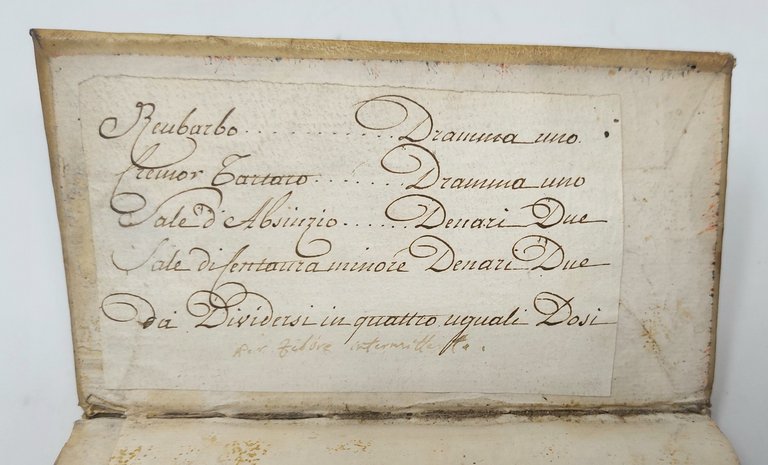 Reubarbo . . . . . . . . . . . . Dramma uno.
Cremor Tartaro . . . . . . . Dramma uno
Sale d'Absinzio . . . . . . Denari Due
Sale di Centaura minore Denari Due
da Dividersi in quattro uguali Dosi
Per febbre intermittente.